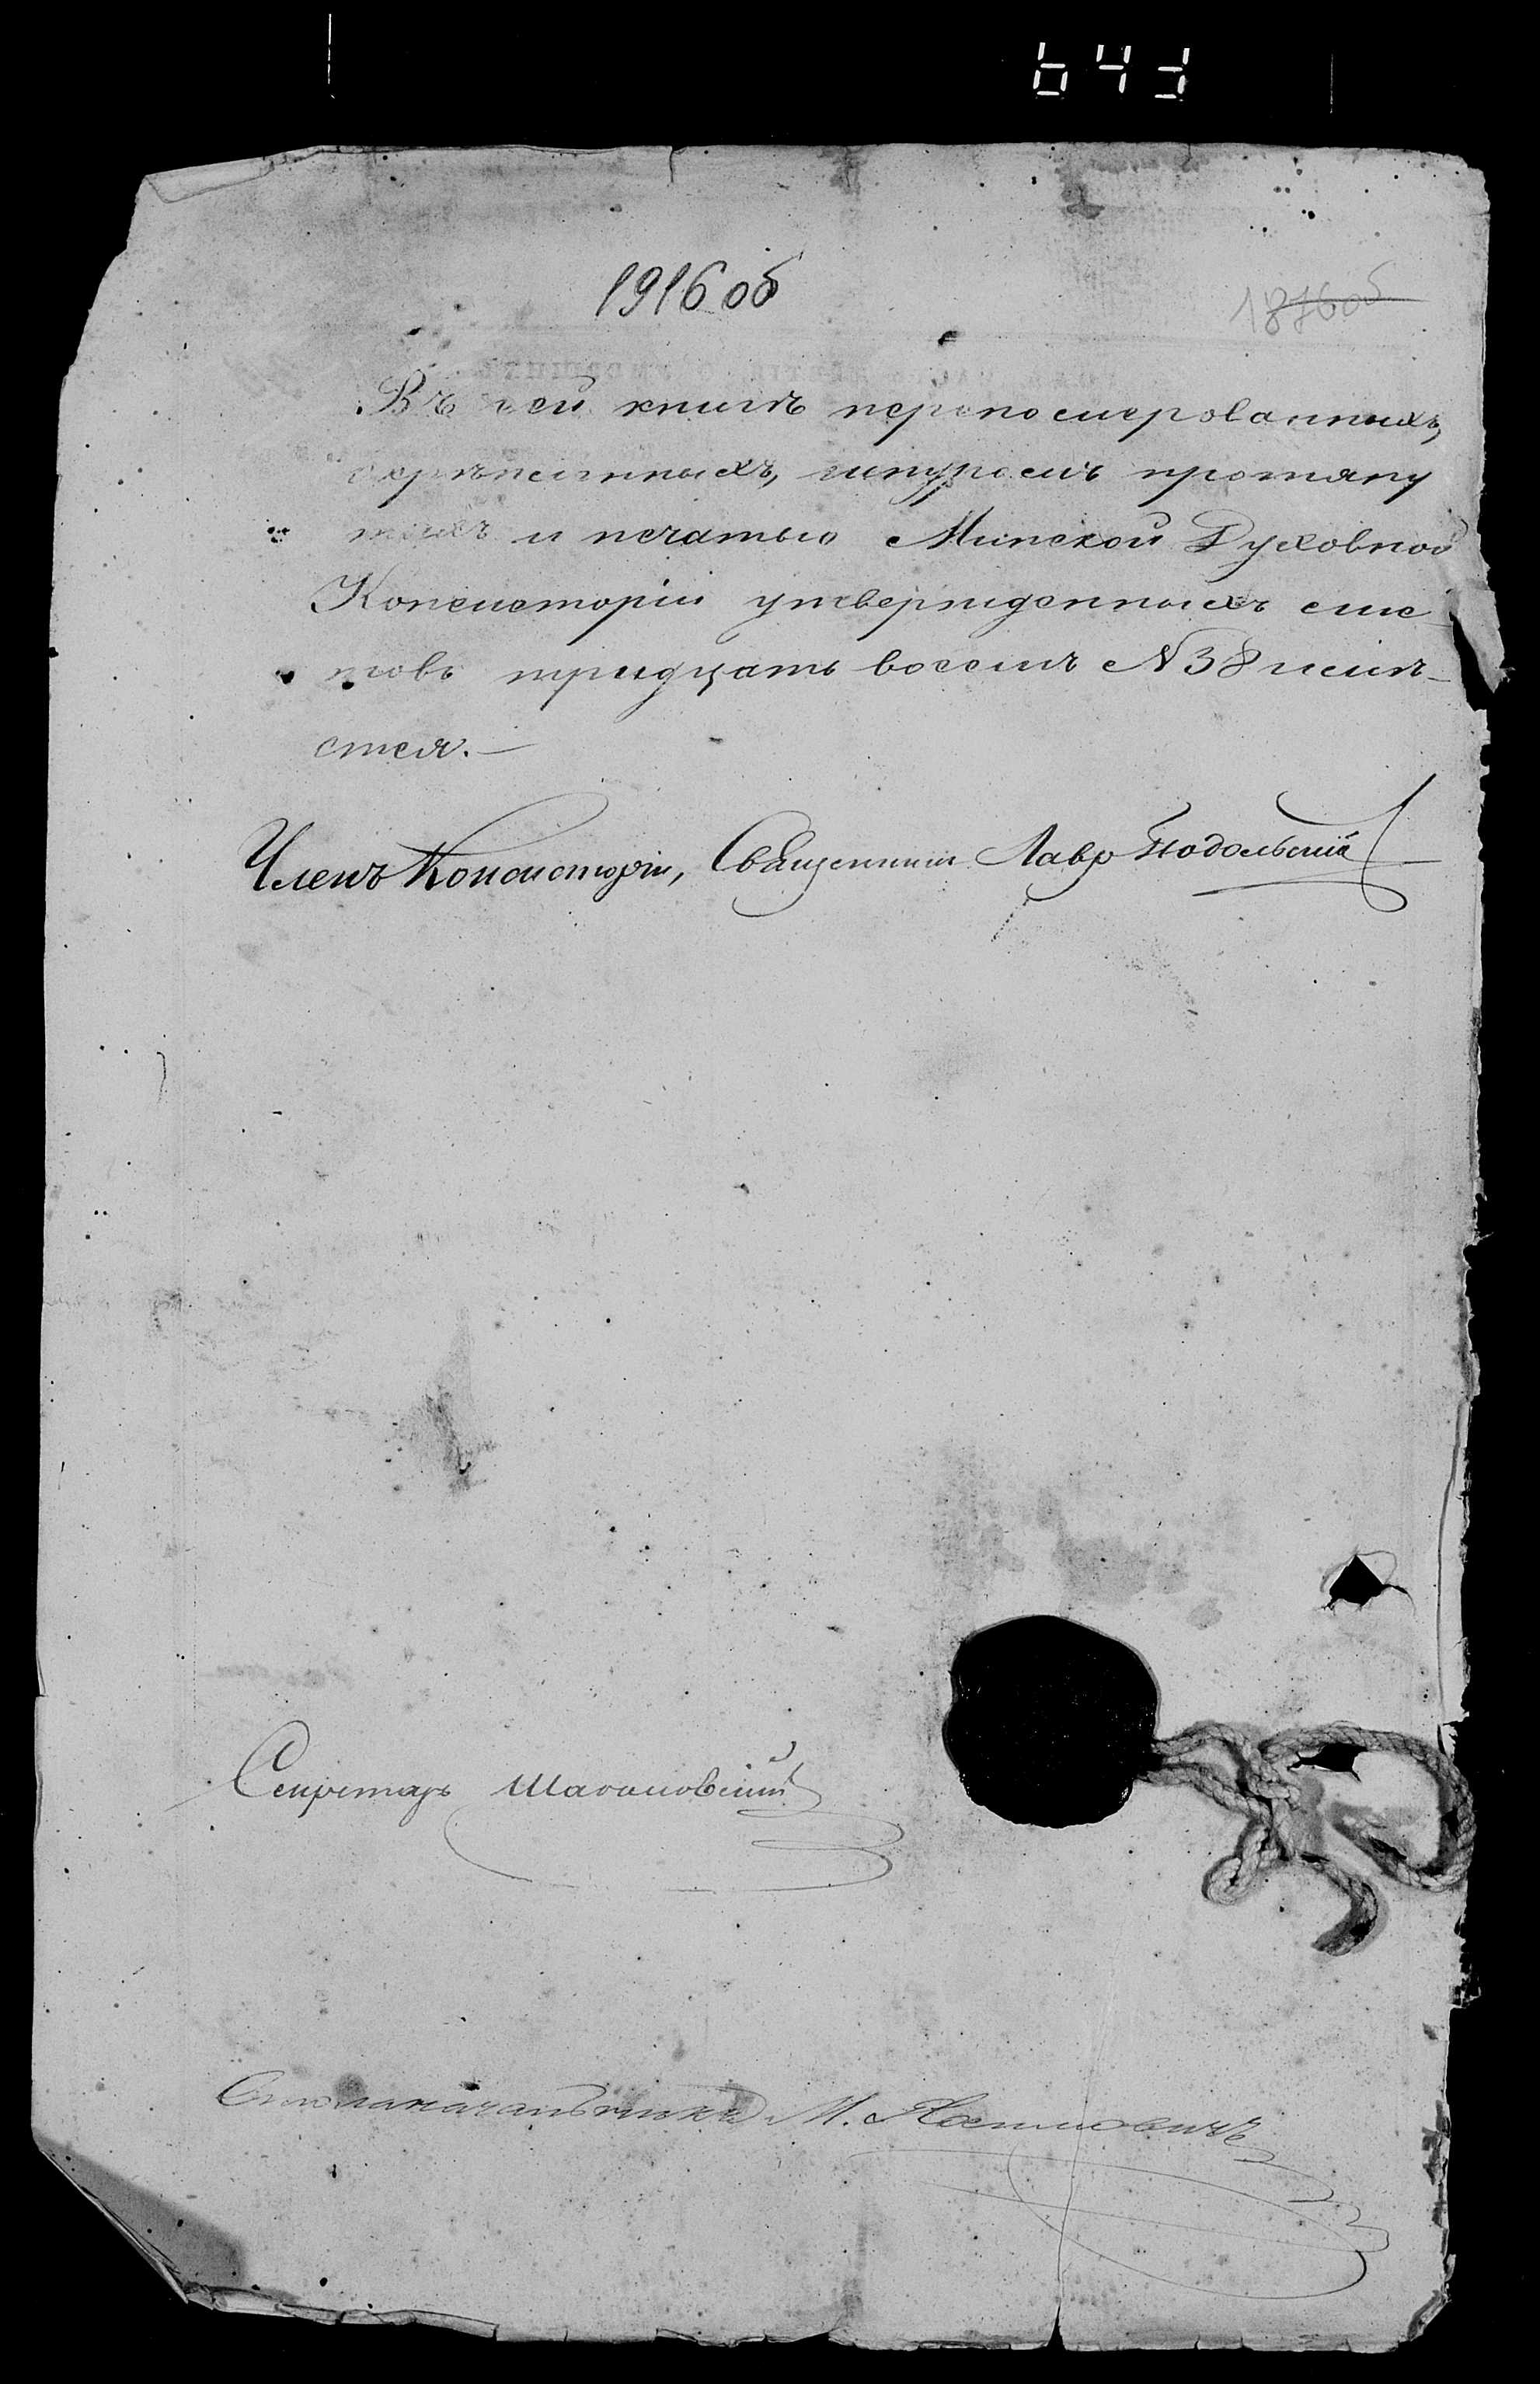 643
1916 об
1876 об
Въ сей книгѣ перепомерованныхъ,
скрѣпленныхъ, шнуромъ протяну
тыхъ и печатью Минской Духовной
Консисторіи утвержденныхъ лис-
товъ тридцать восемь N 38 имѣ-
ется.—
Членъ Консисторіи, Священникъ Лавръ Подольскій
Секретарь
Столоначальникъ М.